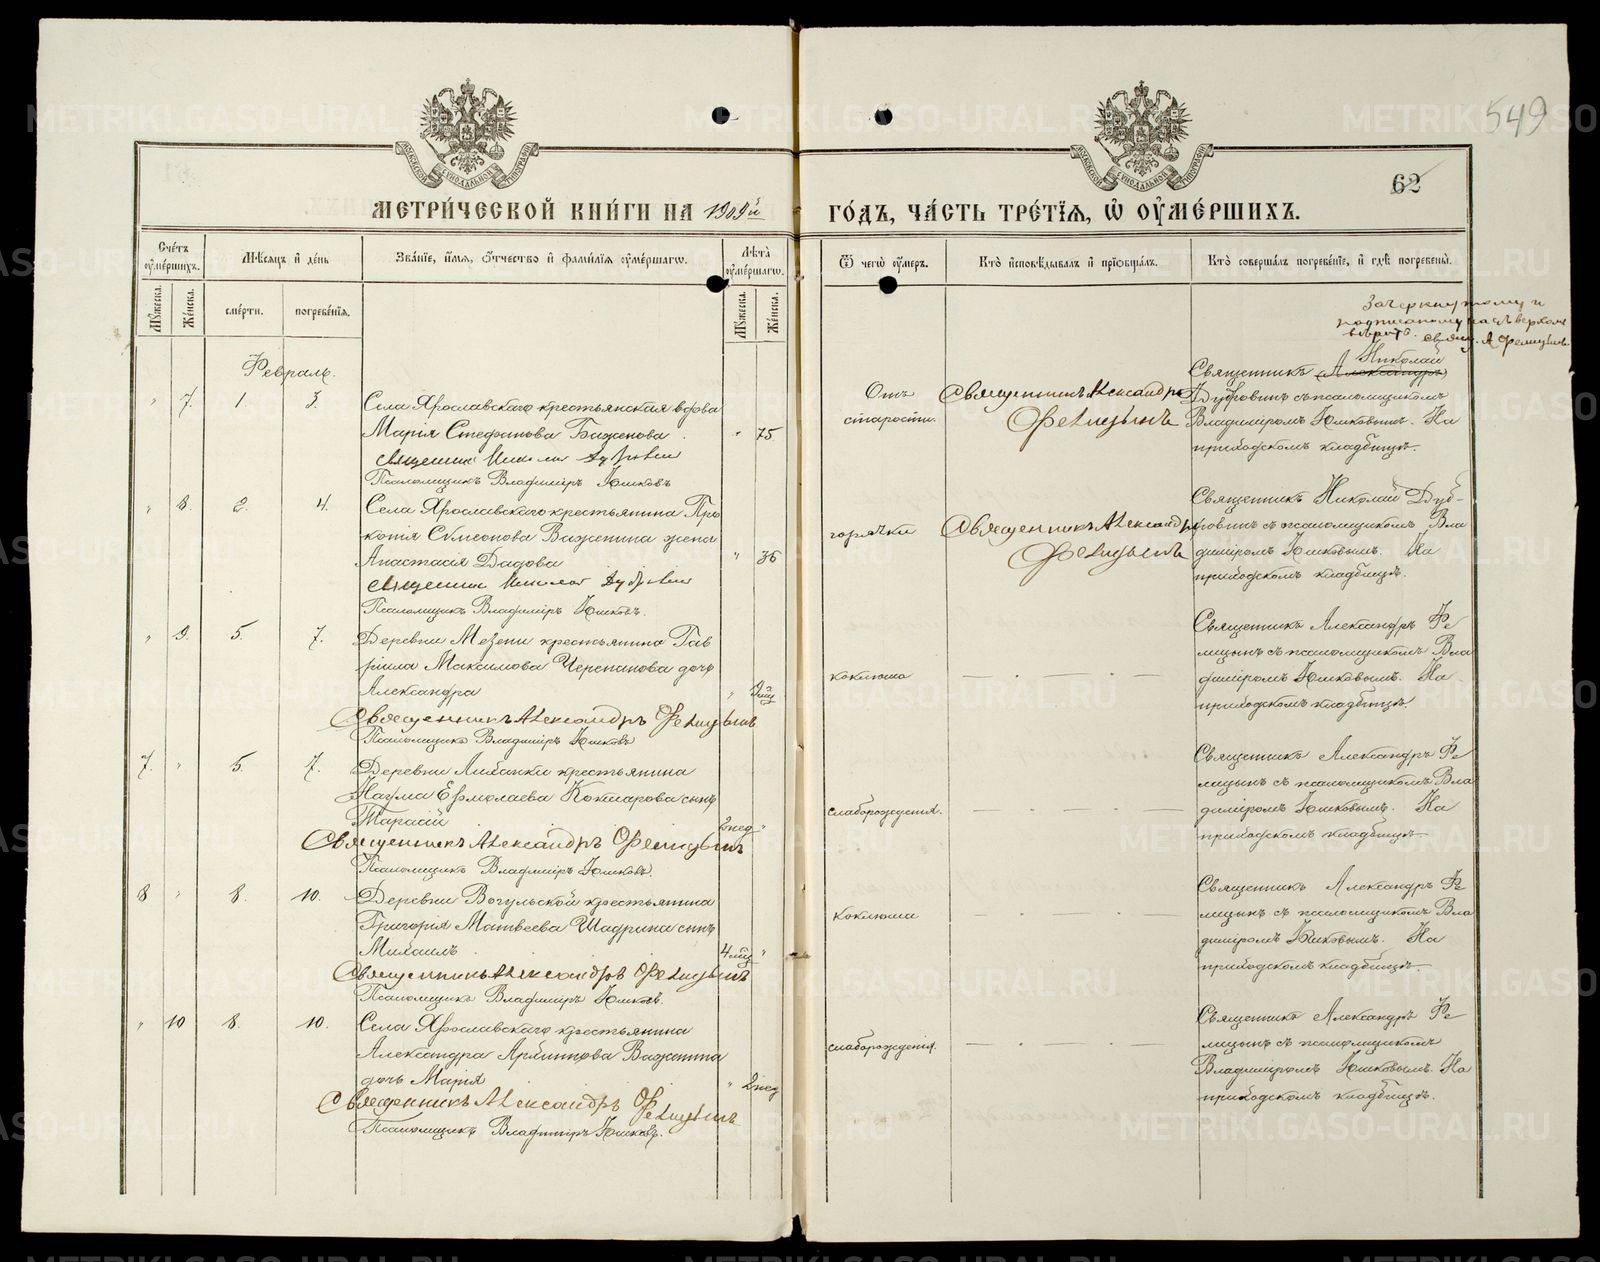 549
62
МЕТРИ́ЧЕСКОЙ КНИ́ГИ НА 1909й ГО́ДЪ, ЧА́СТЬ ТРЕ́ТІѦ, Ѡ҆ ОУ҆МЕ́РШИХЪ.
Сче́тъ оу҆ме́ршихъ.
Мѣ́сяцъ и҆ де́нь
Зва́ніе, и҆́мѧ, ѻ҆́тчество и҆ фами́лїѧ оу҆ме́ршагѡ.
Лѣ́та оу҆ме́ршагѡ.
Ѿ чегѡ̀ оу҆́меръ.
Кто̀ и҆сповѣ́дывалъ и҆ прїѡбща́лъ.
Кто̀ соверша́лъ погребе́нїе, и҆ гдѣ̀ погребены̀.
Мꙋ́жеска.
Же́нска.
сме́рти.
погребе́нїѧ.
Мꙋ́жеска.
Же́нска.
Зачеркнутому и
подписаному на сверхом
вѣрить. свящ. А Фелицынъ
Февраль.
" 7. 1 3. Села Ярославскаго крестьянская вдова
Марія Стефанова Баженова " 75
священник Николай Дубровин
Псаломщикъ Владиміръ Юшковъ
Отъ
старости.
Священникъ Александръ
Фелицынъ
Николай
Священникъ (Александръ)
Дубровинъ съ псаломщикомъ
Владиміромъ Юшковымъ. На
приходскомъ кладбищѣ.
" 8. 2. 4. Села Ярославскаго крестьянина Про
копія Сѵмеонова Важенина жена
Анастасія Дадова " 36
священник Николай Дубровин
Псаломщикъ Владиміръ Юшковъ.
горячки
Священникъ Александръ
Фелицынъ
Священникъ Николай Дуб-
ровинъ съ псаломщикомъ Вла
диміромъ Юшковымъ. На
приходскомъ кладбищѣ.
" 9. 5. 7. Деревни Мезени крестьянина Гав
ріила Максимова Черепанова дочь
Александра
Священникъ Александръ Фелицынъ
Псаломщикъ Владиміръ Юшковъ
коклюша
Священникъ Александръ Фе
лицынъ съ псаломщикомъ Вла
диміромъ Юшковымъ. На
приходскомъ кладбищѣ.
7. " 5. 7. Деревни крестьянина
Наума Ермолаева Кокшарова сынъ
Тарасій 2 нед "
Священникъ Александръ Фелицынъ
Псаломщикъ Владиміръ Юшковъ.
слаборожденія.
Священникъ Александръ Фе
лицынъ съ псаломщикомъ Вла
диміромъ Юшковымъ. На
приходскомъ кладбищѣ.
8 " 8. 10. Деревни Вогульской крестьянина
Григорія Матвеева Шадрина сынъ
Михаилъ 4 мѣц "
Священникъ Александръ Фелицынъ
Псаломщикъ Владиміръ Юшковъ.
Коклюша
Священникъ Александръ Фе
лицынъ съ псаломщикомъ Вла
диміромъ Юшковымъ. На
приходскомъ кладбищѣ.
" 10 8. 10. Села Ярославскаго крестьянина
Александра Важенина
дочь Марія " 2 нед
Священникъ Александръ Фелицынъ
Псаломщикъ Владиміръ Юшковъ.
слаборожденія.
Священникъ Александръ Фе
лицынъ съ псаломщикомъ
Владиміромъ Юшковымъ. На
приходскомъ кладбищѣ.
METRIKI.GASO-URAL.RU